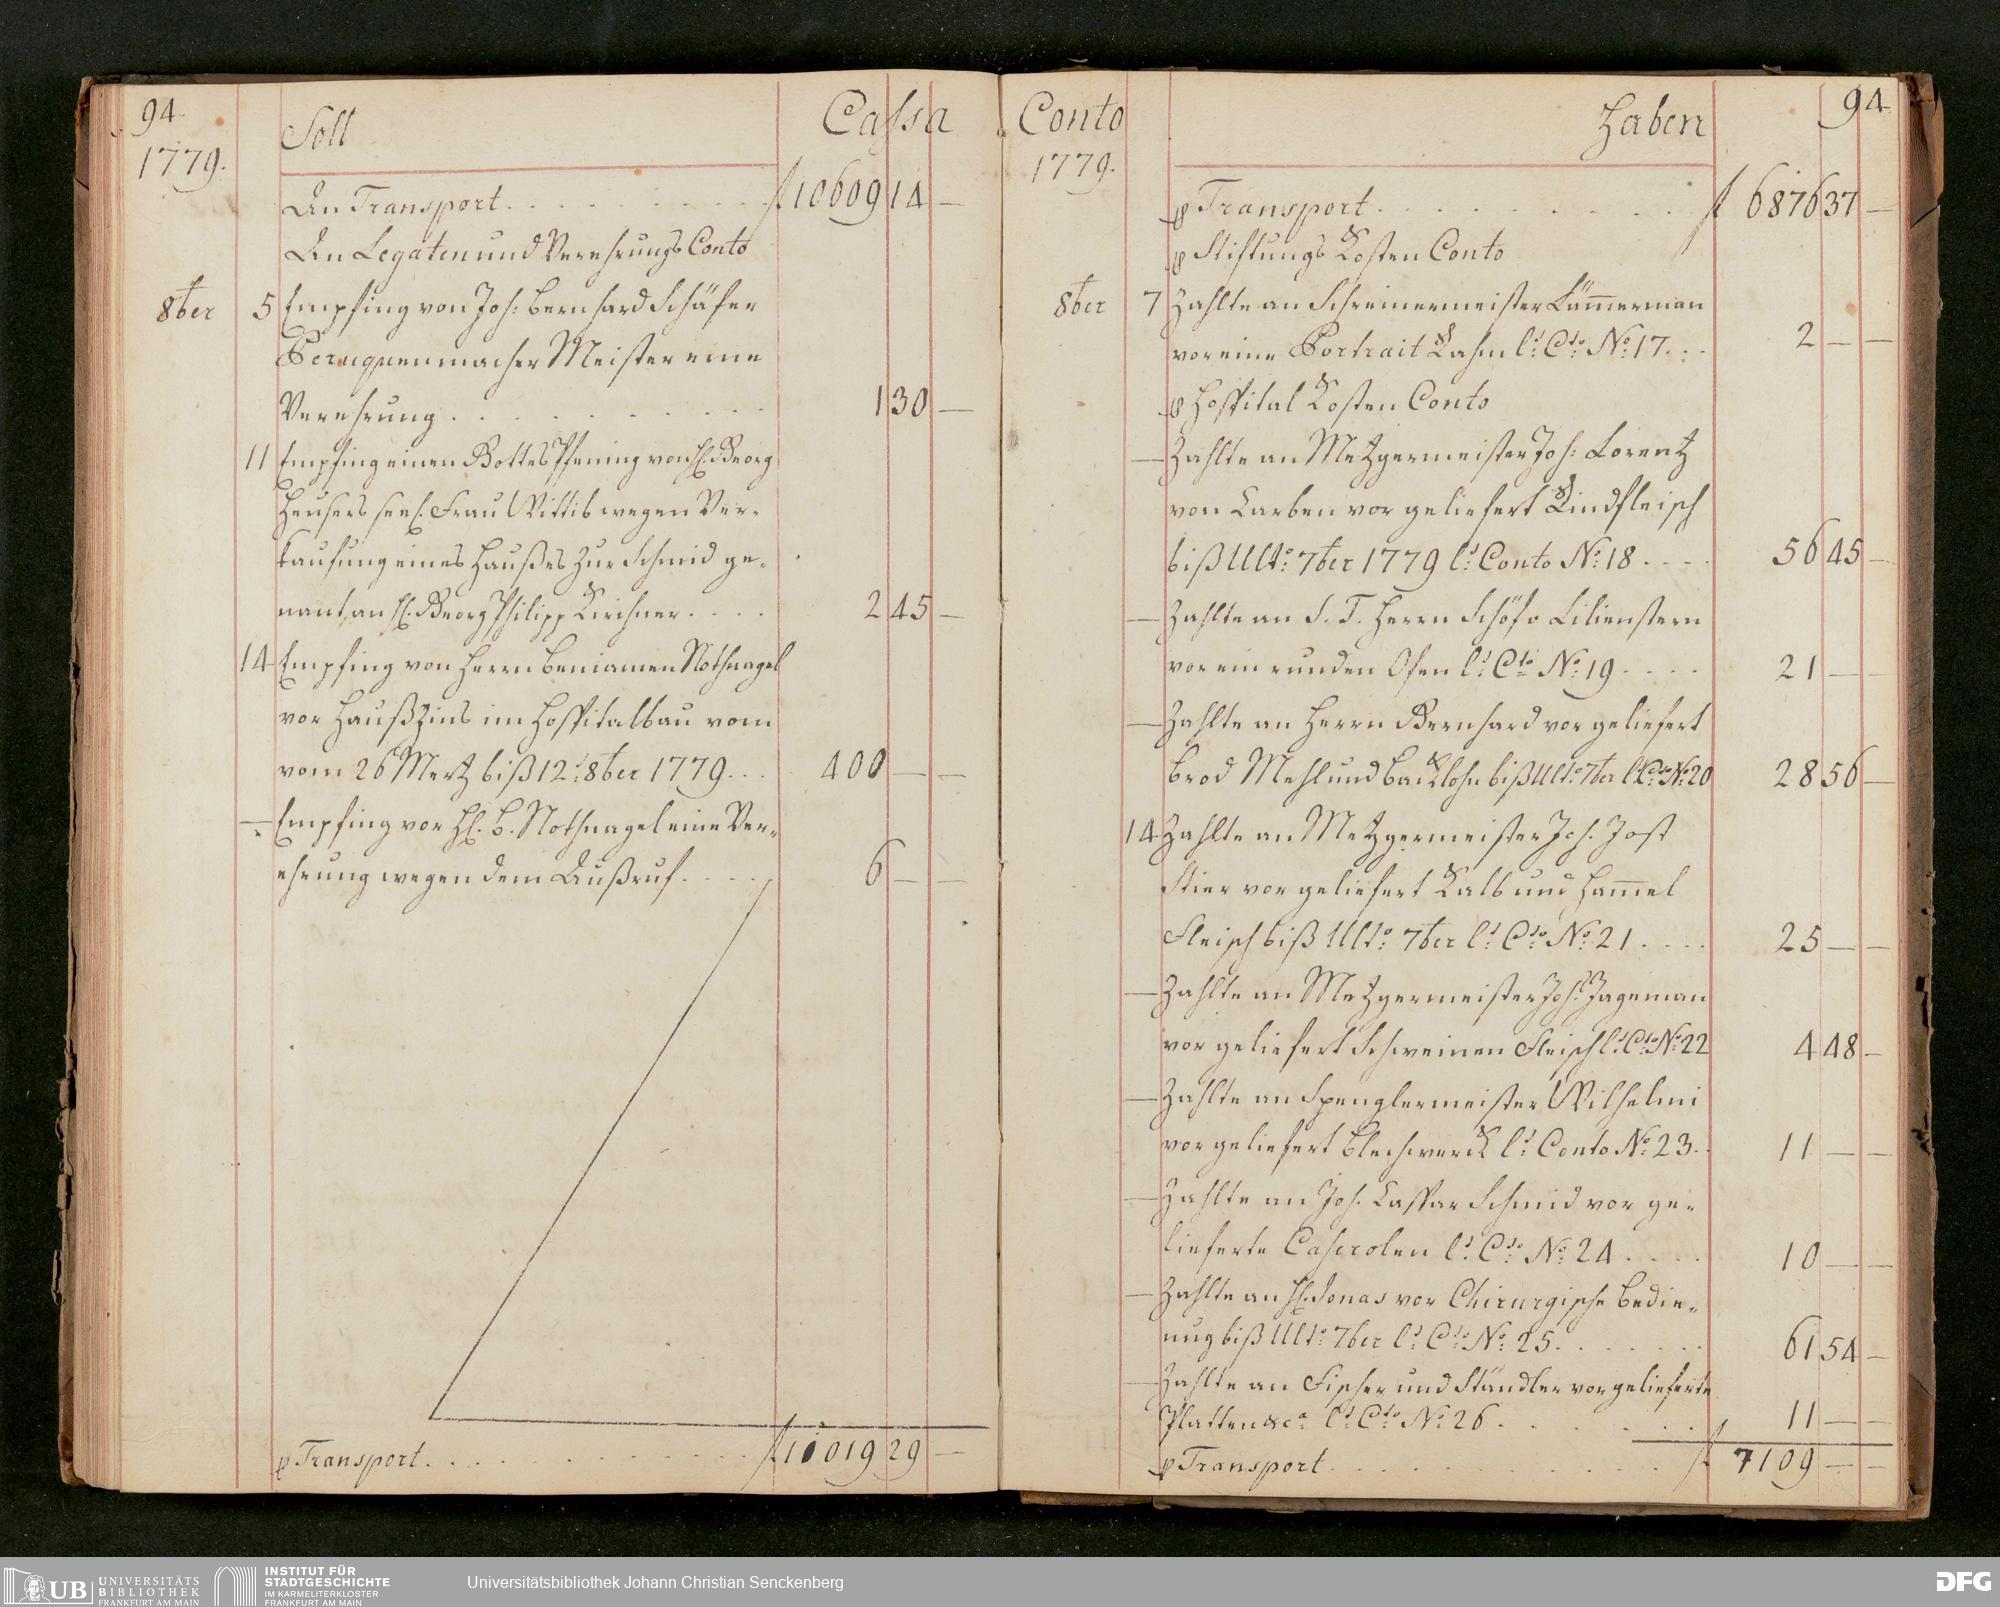 94.
Soll
Cassa
1779.
An Transport . . . . . . . . . f 10609 14 —
An Legaten und Verehrungs Conto
8ber 5 Empfing von Joh: Bernhard Schäfer
Peruquenmacher Meister eine
Verehrung . . . . . . . . . 1 30 —
11 Empfing einen Gottes Pfening von H. Georg
Heusers seel. Frau Wittib wegen Ver-
kaufung eines Haußes zur Schmid ge-
nant, an H. Georg Philipp Kirchner . . . . 2 45 —
14 Empfing von Herrn Beniamen Nothnagel
vor Haußzins im Hospitalbau vom
vom 26 Mertz biß 12t 8ber 1779 . . . 400 — —
— Empfing vor H. B. Nothnagel eine Ver-
ehrung wegen dem Außruf . . . . 6 — —
p Transport . . . . . . . . . f 11019 29 —
Conto
Haben
94
1779.
p Transport . . . . . . . . . f 6876 37 —
p Stiftungs Kosten Conto
8ber 7 Zahlte an Schreinermeister Lämmerman
vor eine Portrait Rahm lt. Cto. No. 17 . . . 2 — —
p Hospital Kosten Conto
— Zahlte an Metzgermeister Joh: Lorentz
von Carben vor geliefert Rindfleisch
biß Ulto. 7ber 1779 lt. Conto No. 18 . . . . 56 45 —
— Zahlte an S. T. Herrn Schöf v Lilienstern
vor ein runden Ofen lt. Cto. No. 19 . . . . 21 — —
— Zahlte an Herrn Bernhard vor geliefert
Brod Mehl und Backlohn biß Ulto. 7ber lt. Cto. No. 20 28 56 —
14 Zahlte an Metzgermeister Joh. Jost
Stier vor geliefert Kalb und Hammel
Fleisch biß Ulto. 7ber lt. Cto. No. 21 . . . . 25 — —
— Zahlte an Metzgermeister Joh. Jageman
vor geliefert Schweinen Fleisch lt. Cto. No. 22 4 48 —
— Zahlte an Spenglermeister Wilhelmi
vor geliefert Blechwerck lt. Conto No. 23 . . 11 — —
— Zahlte an Joh. Caspar Schmid vor ge-
lieferte Caserolen lt. Cto. No. 24 . . . . 10 — —
— Zahlte an H. Jonas vor Chirurgische Bedie-
nug biß Ulto. 7ber lt. Cto. No. 25 . . . . . . 61 54 —
— Zahlte an Fischer und Ständler vor gelieferte
Platten &ca. lt. Cto. No. 26 . . . . . . 11 — —
p Transport . . . . . . . . . f 7109 — —
UB UNIVERSITÄTS
BIBLIOTHEK
FRANKFURT AM MAIN
INSTITUT FÜR
STADTGESCHICHTE
IM KARMELITERKLOSTER
FRANKFURT AM MAIN
Universitätsbibliothek Johann Christian Senckenberg
DFG